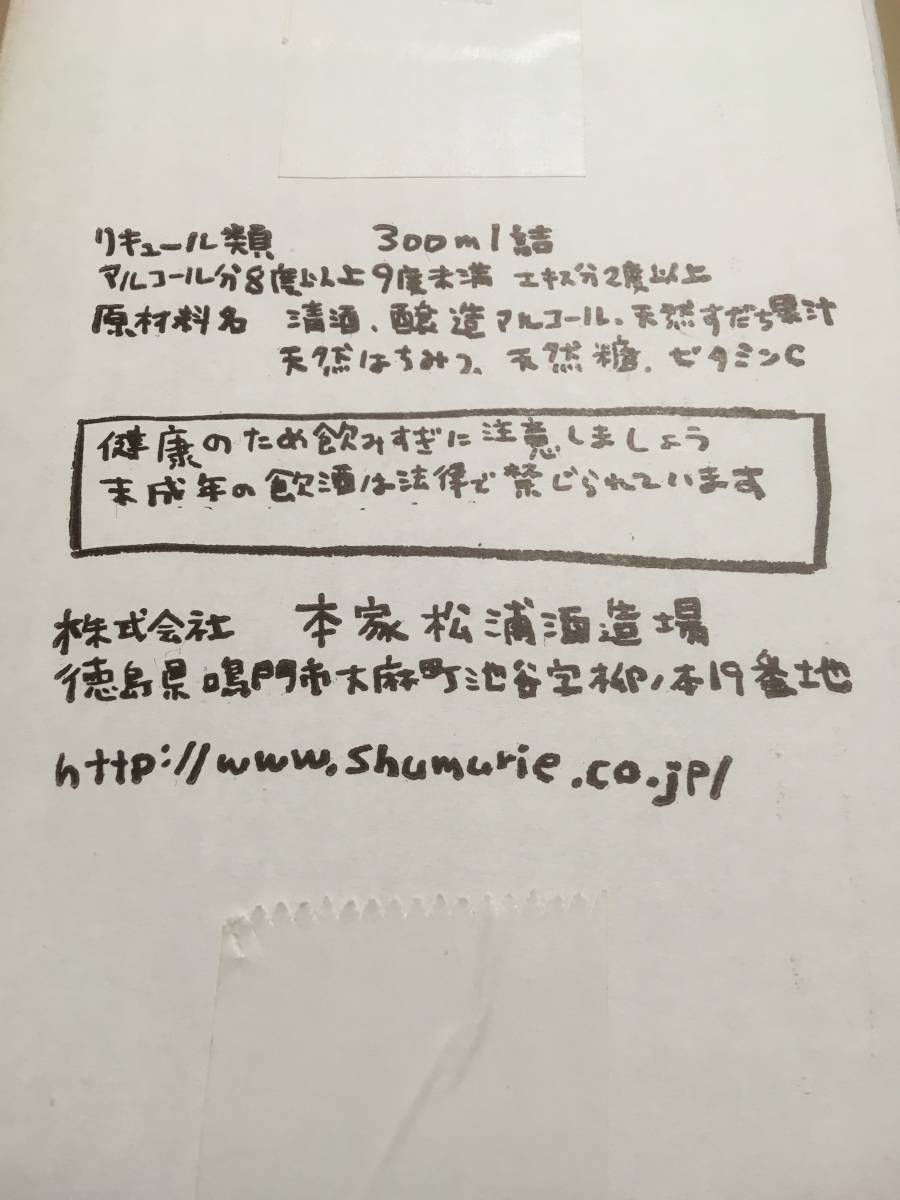 リキュール類 300ml詰
アルコール分8度以上9度未満 エキス分2度以上
原材料名 清酒、醸造アルコール、天然すだち果汁
天然はちみつ、天然糖、ビタミンC
健康のため飲みすぎに注意しましょう
未成年の飲酒は法律で禁じられています
株式会社 本家松浦酒造場
徳島県鳴門市大麻町池谷字柳ノ本19番地
http://www.shumurie.co.jp/